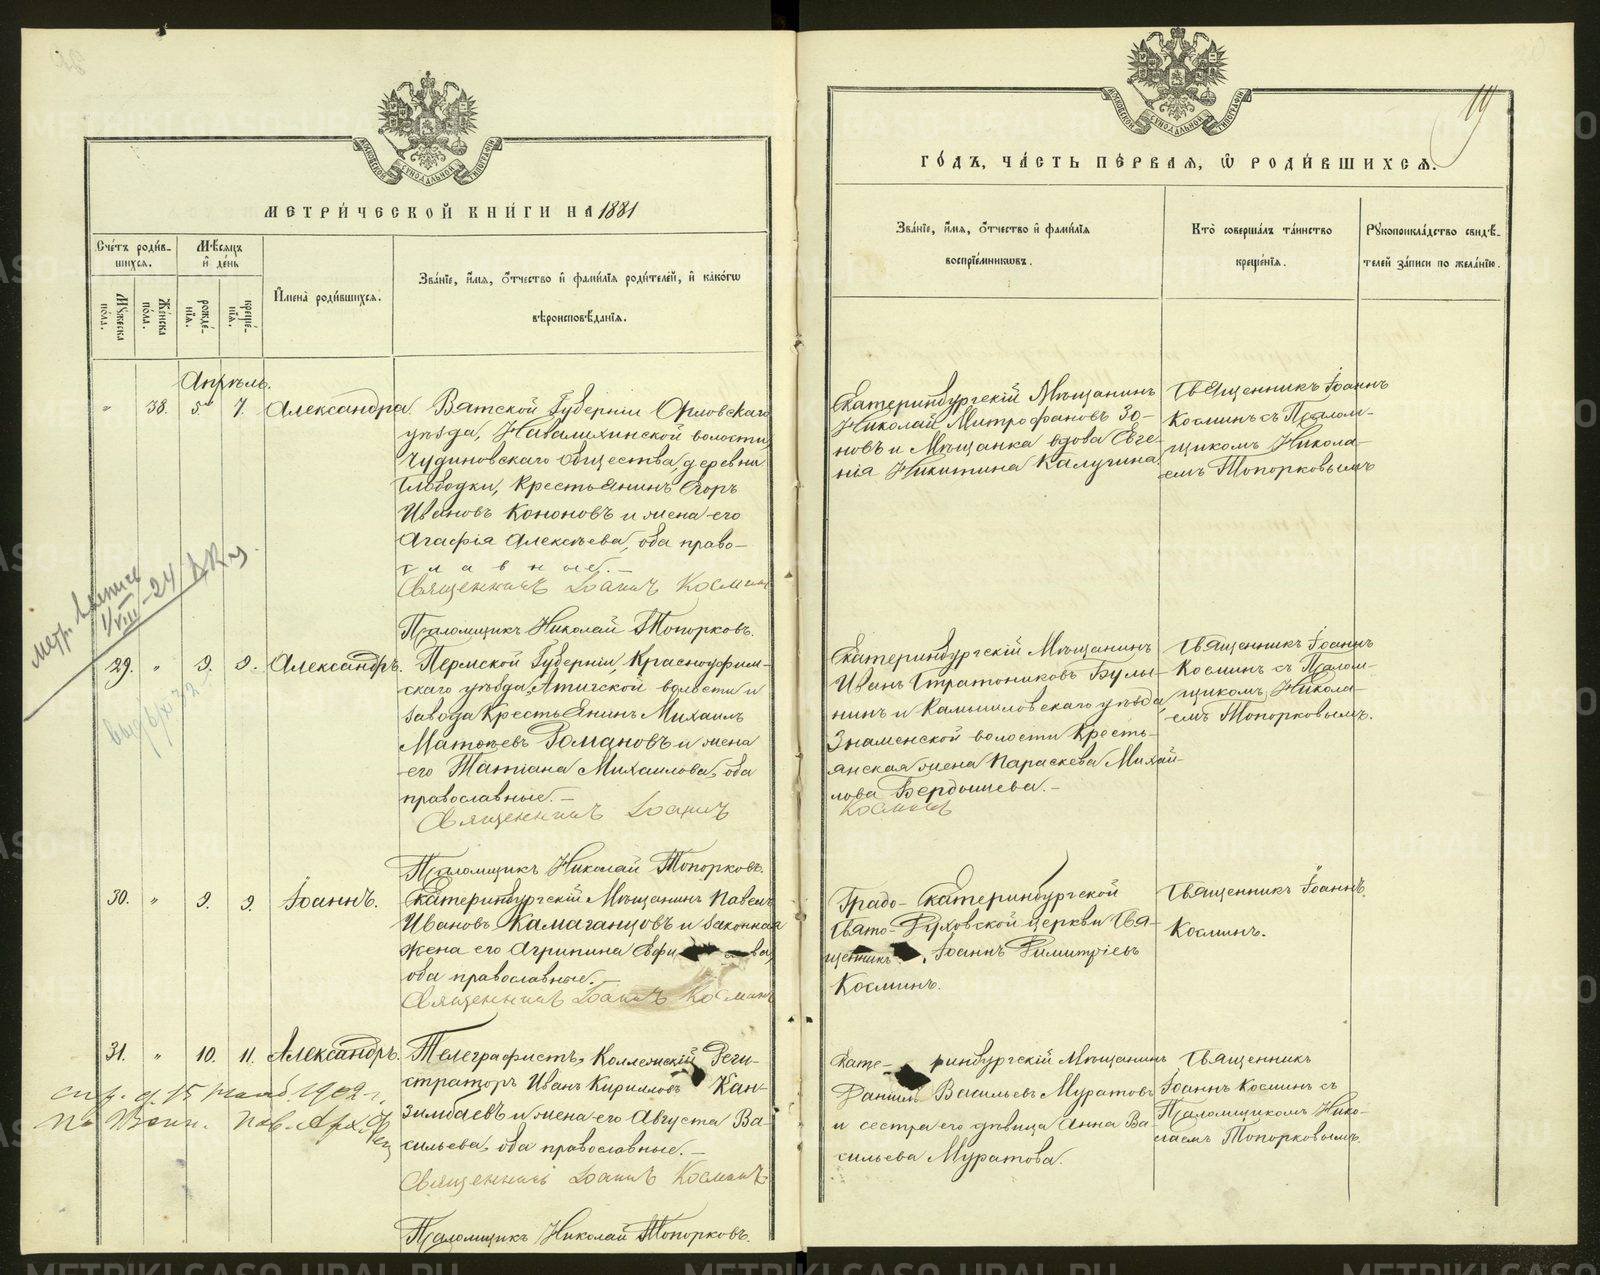 МЕТРИ́ЧЕСКОЙ КНИ́ГИ НА 1881
Сче́тъ роди́в-
шихся.
Мѣ́сяцъ
и҆ де́нь
Мꙋ́жеска
по́ла.
Же́нска
по́ла.
рожде́-
нїѧ.
креще́-
нїѧ.
И҆мена̀ роди́вшихсѧ.
Зва́нїе, и҆́мѧ, ѻ҆́тчество и҆ фами́лїѧ роди́телей, и҆ како́гѡ
вѣроисповѣ́данїѧ.
Апрѣль.
" 38. 5. 7. Александра.
Вятской Губерніи Орловскаго
уѣзда, Навалихинской волости,
Чудиновскаго общества, деревни
Слободки, Крестьянинъ Егоръ
Ивановъ Кононовъ и жена его
Агафія Алексѣева, оба право-
славные.—
Священникъ Іоаннъ Косминъ
Псаломщикъ Николай Топорковъ.
метр. выпись
1/VIII–24
29. " 9. 9. Александръ.
Пермской Губерніи, Красноуфим-
скаго уѣзда, Атигской волости и
завода Крестьянинъ Михаилъ
Матвѣевъ Романовъ и жена
его Татіана Михаилова, оба
православные.—
Священникъ Іоаннъ
Псаломщикъ Николай Топорковъ.
30. " 9. 9. Іоаннъ.
Екатеринбургскій Мѣщанинъ Павелъ
Ивановъ Камаганцовъ и законная
жена его Агрипина Ефи ва,
оба православные.
Священникъ Іоаннъ Косминъ
31. " 10. 11. Александръ.
Телеграфистъ, Коллежскій Реги-
страторъ Иванъ Кирилловъ Кан-
зимбаевъ и жена его Августа Ва-
сильева, оба православные.—
Священникъ Іоаннъ Косминъ
Псаломщикъ Николай Топорковъ.
1902 г.
19
ГО́ДЪ, ЧА́СТЬ ПЕ́РВАѦ, Ѡ҆ РОДИ́ВШИХСѦ.
Зва́нїе, и҆́мѧ, ѻ҆́тчество и҆ фами́лїѧ
воспрїе́мникѡвъ.
Кто̀ соверша́лъ та́инство
креще́нїѧ.
Рꙋкоприкла́дство свидѣ́-
телей за́писи по жела́нїю.
Екатеринбургскій Мѣщанинъ
Николай Митрофановъ Зо-
новъ и Мѣщанка вдова Евге-
нія Никитина Калугина.
Священникъ Іоаннъ
Косминъ съ Псалом-
щикомъ Никола-
емъ Топорковымъ
Екатеринбургскій Мѣщанинъ
Иванъ Стратониковъ Булы-
нинъ и Камышловскаго уѣзда,
Знаменской волости Кресть-
янская жена Параскева Михай-
лова Бердышева.—
Косминъ
Священникъ Іоаннъ
Косминъ съ Псалом-
щикомъ Никола-
емъ Топорковымъ.
Градо-Екатеринбургской
Свято-Духовской церкви Свя-
щенникъ Іоаннъ Димитріевъ
Косминъ.
Священникъ Іоаннъ
Косминъ.
Екате- ринбургскій Мѣщанинъ
Даніилъ Васильевъ Муратовъ
и сестра его дѣвица Анна Ва-
сильева Муратова.
Священникъ
Іоаннъ Косминъ съ
Псаломщикомъ Нико-
лаемъ Топорковымъ.